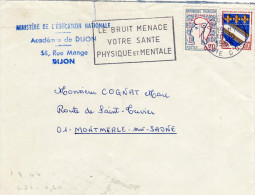 MINISTÈRE DE L'ÉDUCATION NATIONALE
Académie de DIJON
58, Rue Monge
DIJON
LE BRUIT MENACE
VOTRE SANTÉ
PHYSIQUE ET MENTALE
Monsieur COGNAT Marc
Route de Saint-Trivier
01. MONTMERLE-sur-SAÔNE